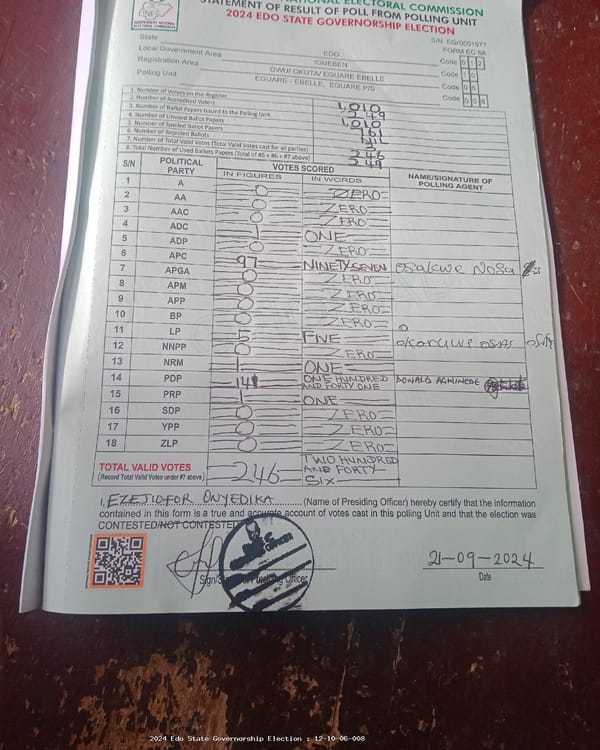 INDEPENDENT NATIONAL ELECTORAL COMMISSION
STATEMENT OF RESULT OF POLL FROM POLLING UNIT
2024 EDO STATE GOVERNORSHIP ELECTION
S/N: EG/0001971
FORM EC 8A
State EDO Code 0 1 2
Local Government Area IGUEBEN Code 1 0
Registration Area OWU/ OKUTA/ EGUARE EBELLE Code 0 6
Polling Unit EGUARE - EBELLE, EGUARE P/S Code 0 0 8
1. Number of Voters on the Register 1,010
2. Number of Accredited Voters 249
3. Number of Ballot Papers Issued to the Polling Unit 1,010
4. Number of Unused Ballot Papers 761
5. Number of Spoiled Ballot Papers NIL
6. Number of Rejected Ballots 3
7. Number of Total Valid Votes (Total Valid Votes cast for all parties) 246
8. Total Number of Used Ballots Papers (Total of #5 + #6 + #7 above) 249
S/N POLITICAL PARTY VOTES SCORED NAME/SIGNATURE OF POLLING AGENT
IN FIGURES IN WORDS
1 A 0 ZERO
2 AA 0 ZERO
3 AAC 0 ZERO
4 ADC 1 ONE
5 ADP 0 ZERO
6 APC 97 NINETY SEVEN osakwe Nosa
7 APGA 0 ZERO
8 APM 0 ZERO
9 APP 0 ZERO
10 BP 0 ZERO
11 LP 5 FIVE
12 NNPP 0 ZERO
13 NRM 1 ONE
14 PDP 141 ONE HUNDRED AND FORTY ONE DONALD
15 PRP 1 ONE
16 SDP 0 ZERO
17 YPP 0 ZERO
18 ZLP 0 ZERO
TOTAL VALID VOTES 246 TWO HUNDRED AND FORTY SIX
(Record Total Valid Votes under #7 above)
I, EZEJIOFOR ONYEDIKA (Name of Presiding Officer) hereby certify that the information
contained in this form is a true and accurate account of votes cast in this polling Unit and that the election was
CONTESTED/NOT CONTESTED
21-09-2024
Date
2024 Edo State Governorship Election : 12-10-06-008